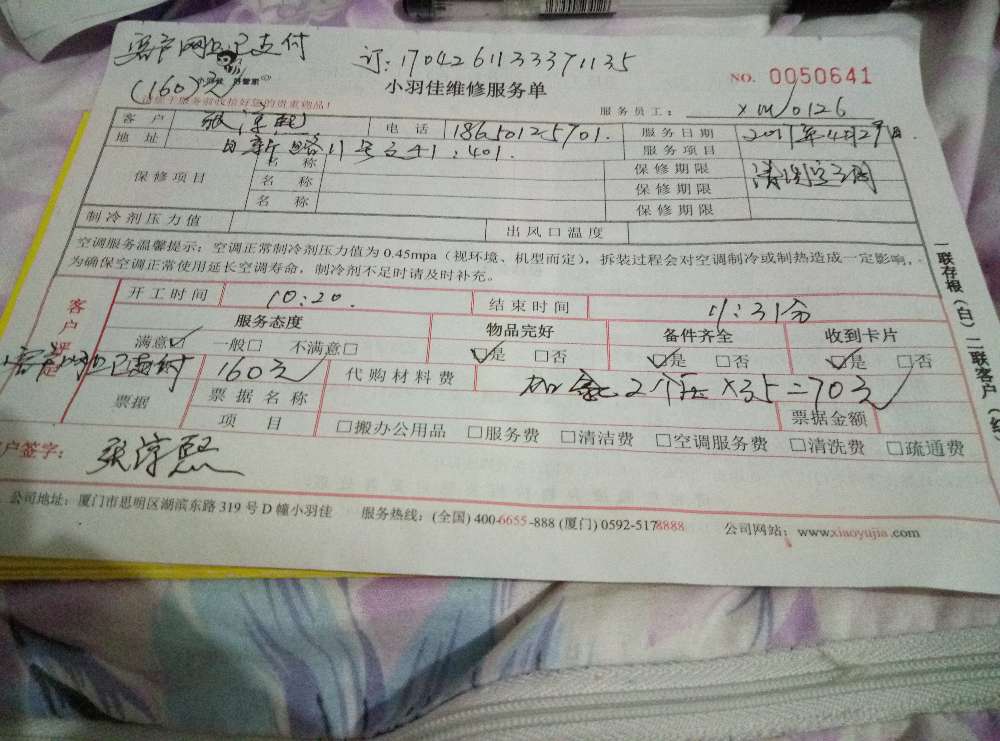 客户网上已支付
(160)元
订:170426113337​1135
小羽佳维修服务单
NO. 0050641
服务员工: xm0126
客户 张淳熙 电话 18650125701. 服务日期
地址 路11号之41:401. 服务项目
保修项目 名称 保修期限 清洗空调
名称 保修期限
名称 保修期限
制冷剂压力值 出风口温度
空调服务温馨提示:空调正常制冷剂压力值为0.45mpa(视环境、机型而定),拆装过程会对空调制冷或制热造成一定影响,
为确保空调正常使用延长空调寿命,制冷剂不足时请及时补充。
开工时间 10:20. 结束时间 11:31分
客户
服务态度 物品完好 备件齐全 收到卡片
满意☑ 一般□ 不满意□ ☑是 □否 ☑是 □否 ☑是 □否
客户网上已支付 160元 代购材料费 2个 ×35=70元
票据 票据名称 票据金额
项目 □搬办公用品 □服务费 □清洁费 □空调服务费 □清洗费 □疏通费
户签字: 张淳熙
公司地址:厦门市思明区湖滨东路319号D幢小羽佳 服务热线:(全国)400-6655-888 (厦门)0592-5178888 公司网站:www.xiaoyujia.com
一联存根(白)二联客户(红